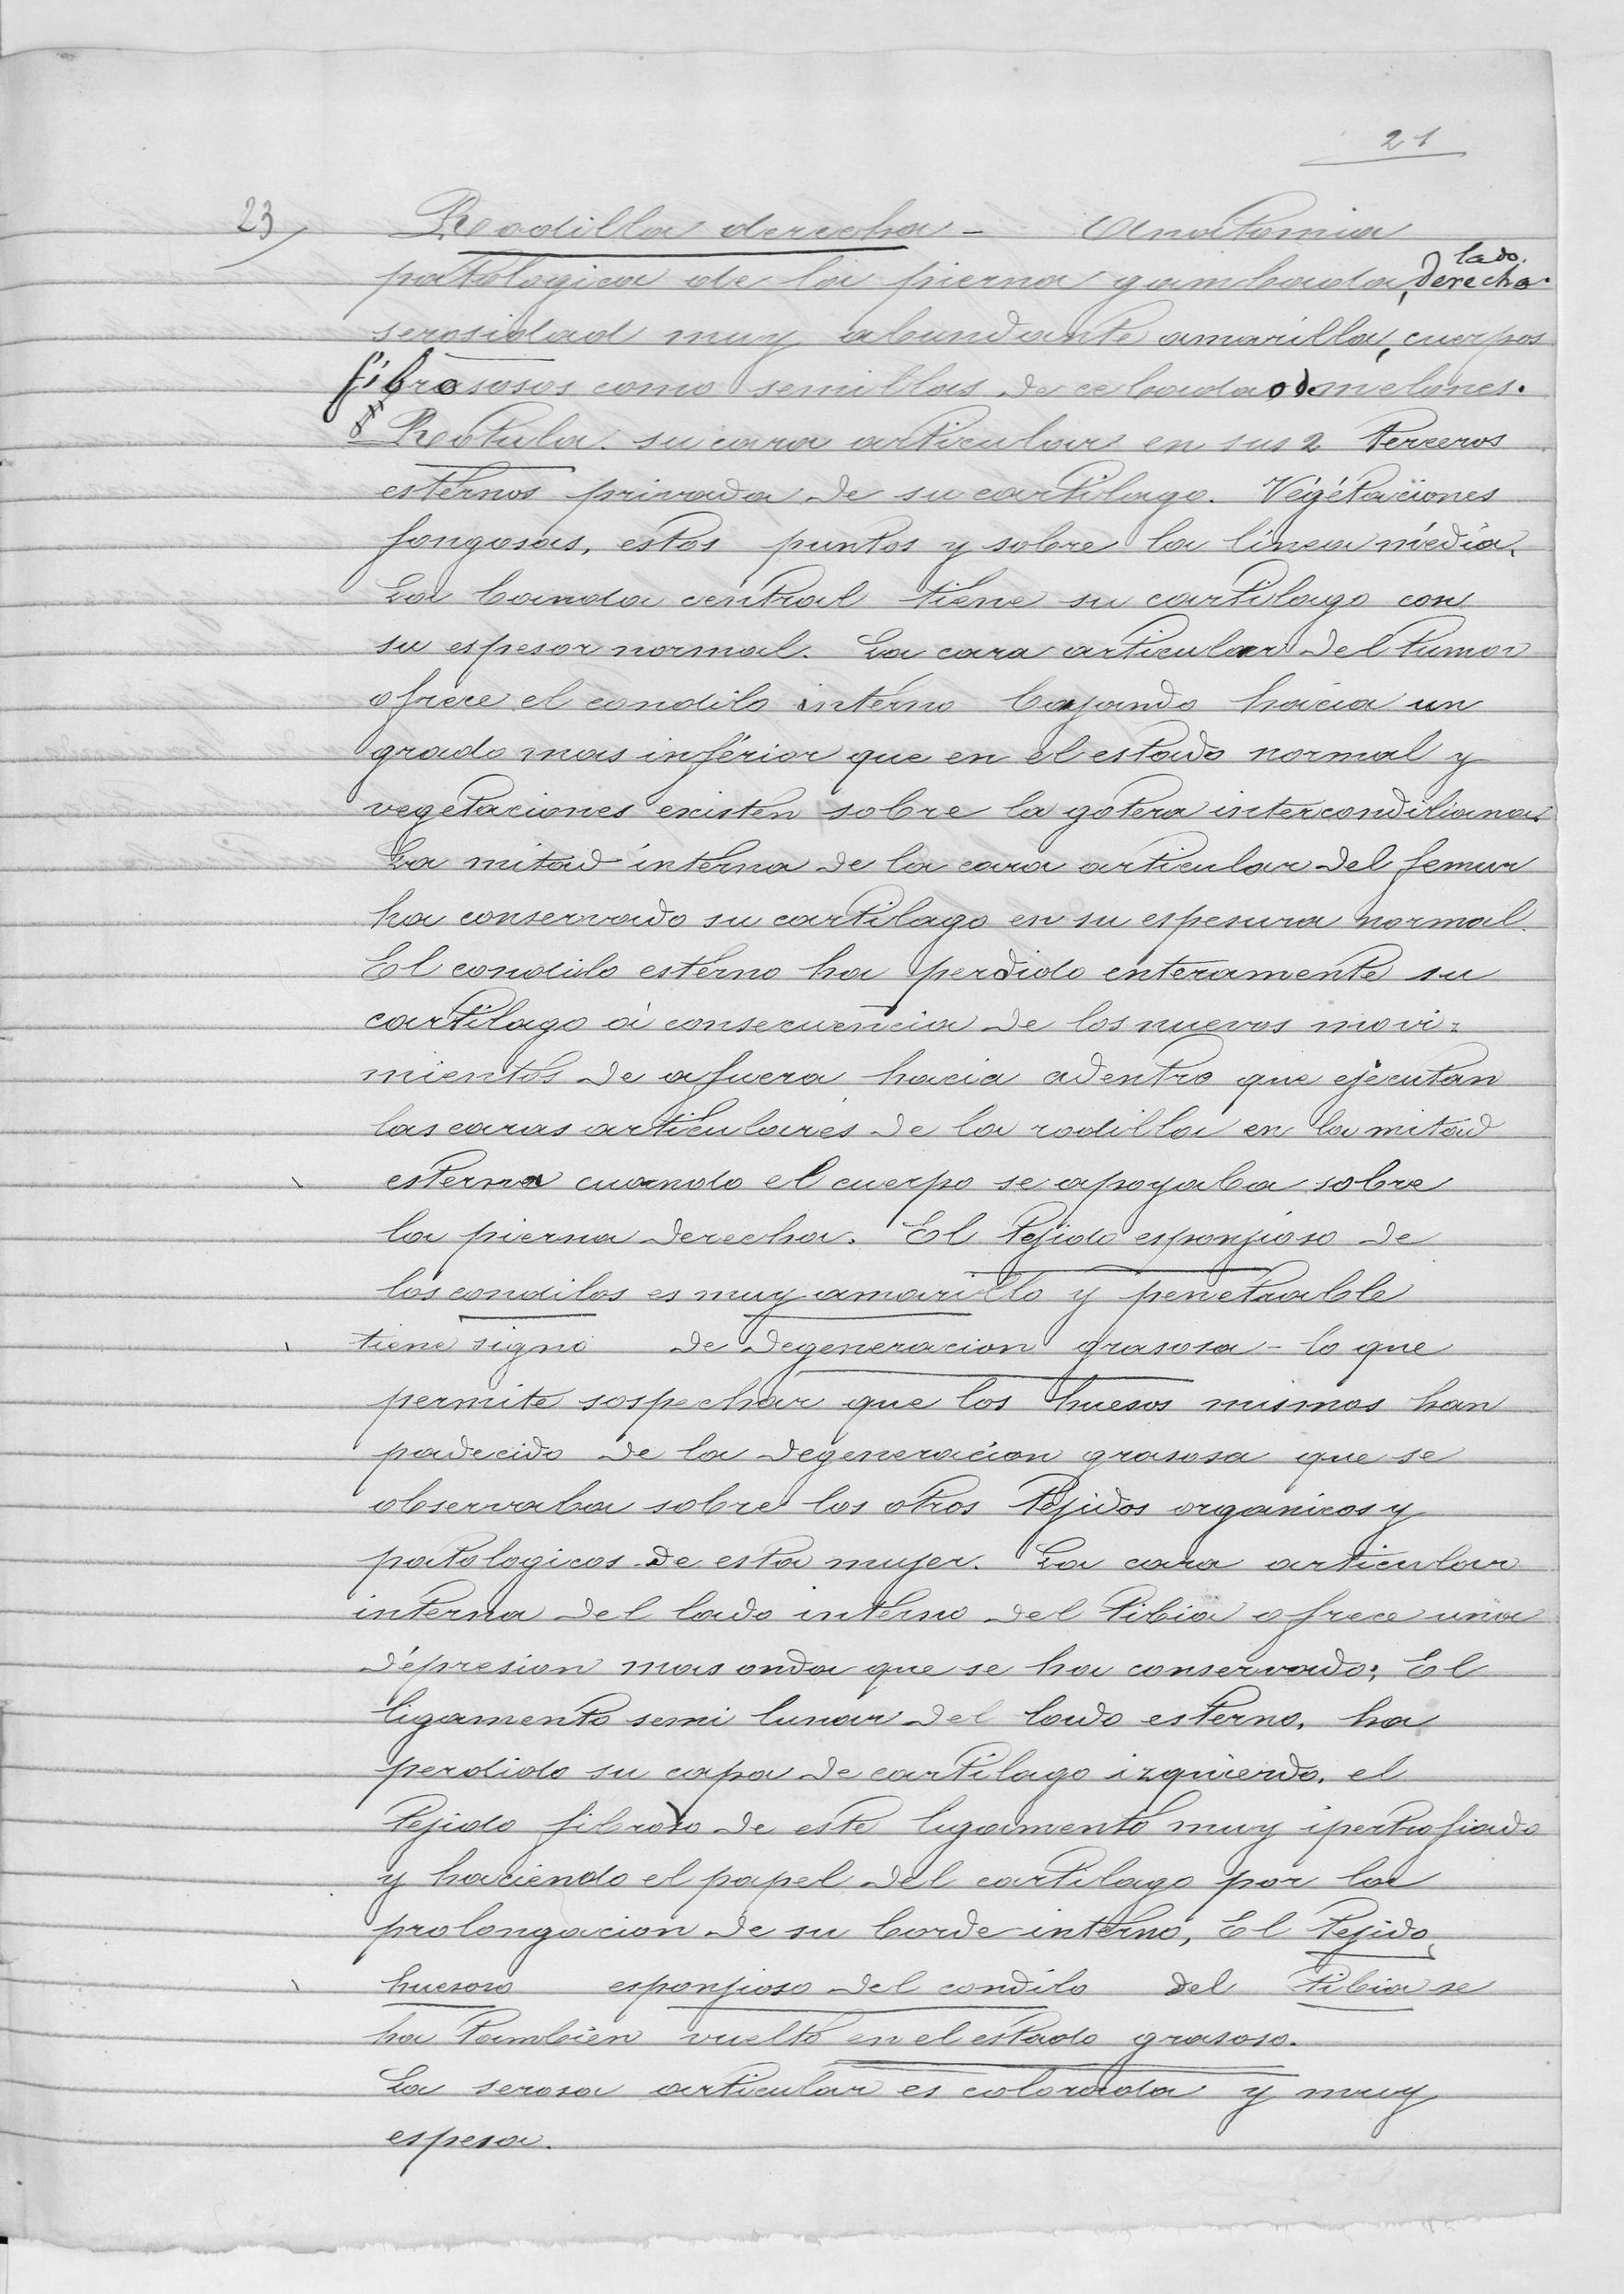 21
23
Rodilla derecha - Anatomia
lado.
patologica de la pierna gambada, derecho.
serosidad muy abundante amarilla, cuerpos
fibrosos como semillas de cebada, o de melones.
§ Rotula. su cara articular en sus 2 terceros
esternos privada de su cartilago. Végétaciones
fongosas, estos puntos y sobre la linea média.
La banda central tiene su cartilago con
su espesor normal. La cara articular del tumor
ofrece el condilo interno bajando hacia un
grado mas inférior que en el estado normal y
vegetaciones existen sobre la gotera intercondiliana.
La mitad interna de la cara articular del femur
ha conservado su cartilago en su espesura normal.
El condilo esterno ha perdido enteramente su
cartilago à consecuencia de los nuevos movi-
mientos de afuera hacia adentro que ejecutan
las caras articulares de la rodilla en la mitad
esterna cuando el cuerpo se apoyaba sobre
la pierna derecha. El tejido esponjioso de
los condilos es muy amarillo y penetrable
tiene signo de degeneracion grasosa - lo que
permite sospechar que los huesos mismos han
padecido de la degeneracion grasosa que se
observaba sobre los otros tejidos organicos y
patologicos de esta mujer. La cara articular
interna del lado interno del tibia ofrece una
dépresion mas onda que se ha conservado; El
ligamento semi lunar del lado esterno, ha
perdido su capa de cartilago izquierdo. el
tejido fibroso de este ligamento muy ipertrofiado
y haciendo el papel del cartilago por la
prolongacion de su borde interno, El tejido
huesoso esponjioso del condilo del tibia se
ha tambien vuelto en el estado grasoso.
La serosa articular es colorada y muy
espesa.